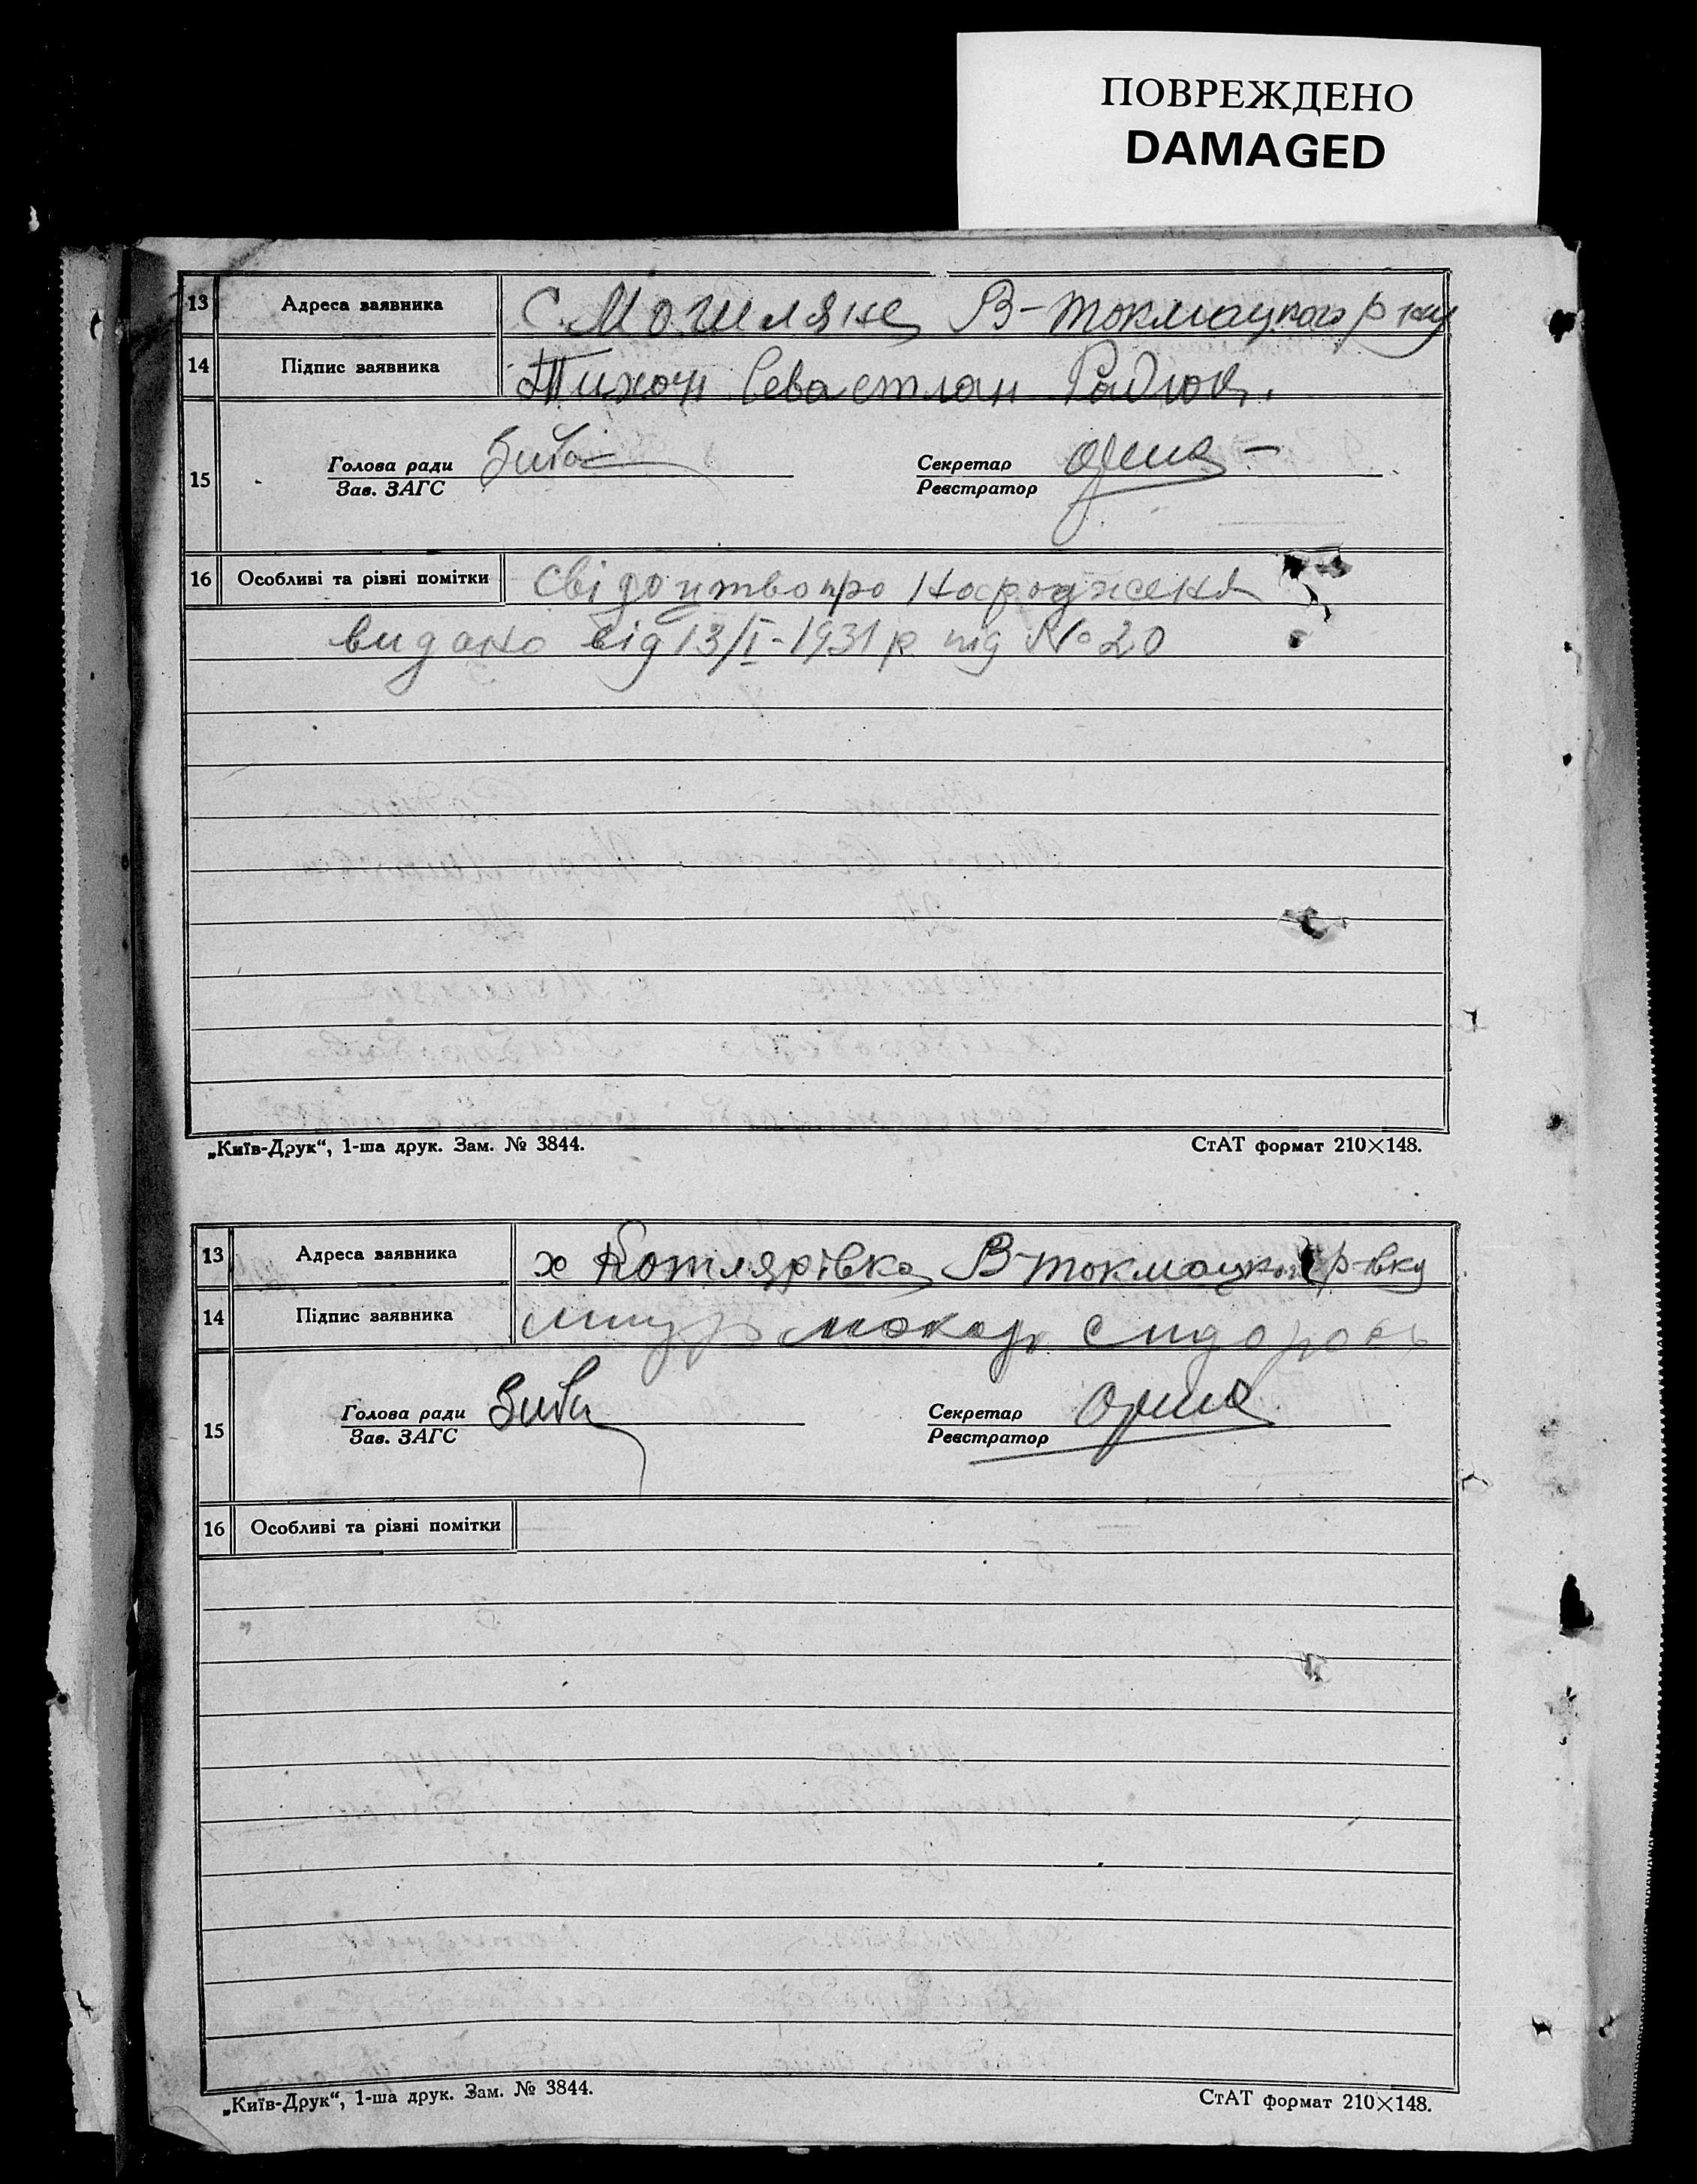 ПОВРЕЖДЕНО
DAMAGED
13 Адреса заявника С. Могиляне В-токмацкого р-ну
14 Підпис заявника Тихон Севастлан
Голова ради Секретар
15
Зав. ЗАГС Реєстратор
16 Особливі та різні помітки свідоцтво про народження
видано від 13/I-1931 р під № 20
„Київ-Друк“, 1-ша друк. Зам. № 3844. СтАТ формат 210×148.
13 Адреса заявника х Котлярівка В-токмацького р-вку
14 Підпис заявника мокар сидоров
Голова ради Секретар
15
Зав. ЗАГС Реєстратор
16 Особливі та різні помітки
„Київ-Друк“, 1-ша друк. Зам. № 3844. СтАТ формат 210×148.